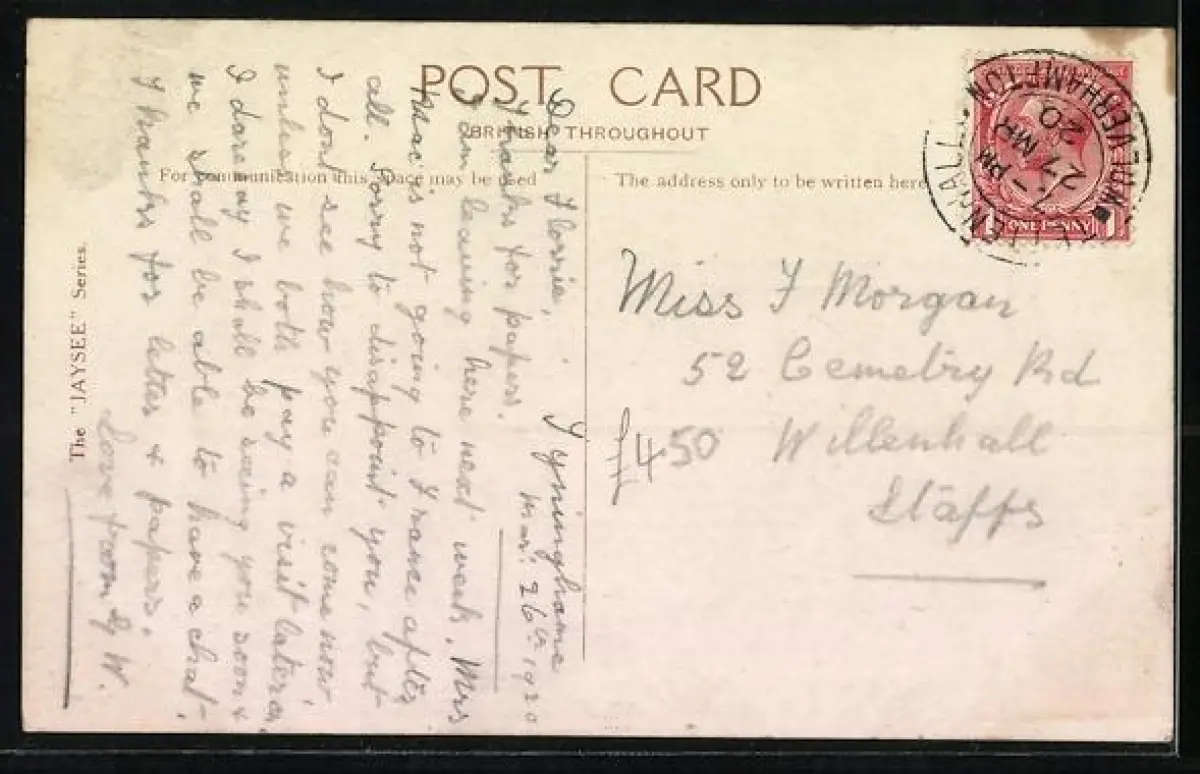 POST CARD
BRITISH THROUGHOUT
For communication this space may be used
The address only to be written here
The "JAYSEE" Series.
WILLENHALL
WOLVERHAMPTON
7 - PM
27 MR
20
ONE PENNY
1 1
Miss F Morgan
52 Cemetry Rd
Willenhall
Staffs
£450
Fyninghame
Mar: 26th 1920
Dear Florrie,
Thanks for papers.
I am leaving here next week, Mrs
Mac is not going to France after
all. Sorry to disappoint you, but
I dont see how you can come now
unless we both pay a visit later on,
I daresay I shall be seeing you soon &
we shall be able to have a chat.
Thanks for letter & papers.
Love from W.